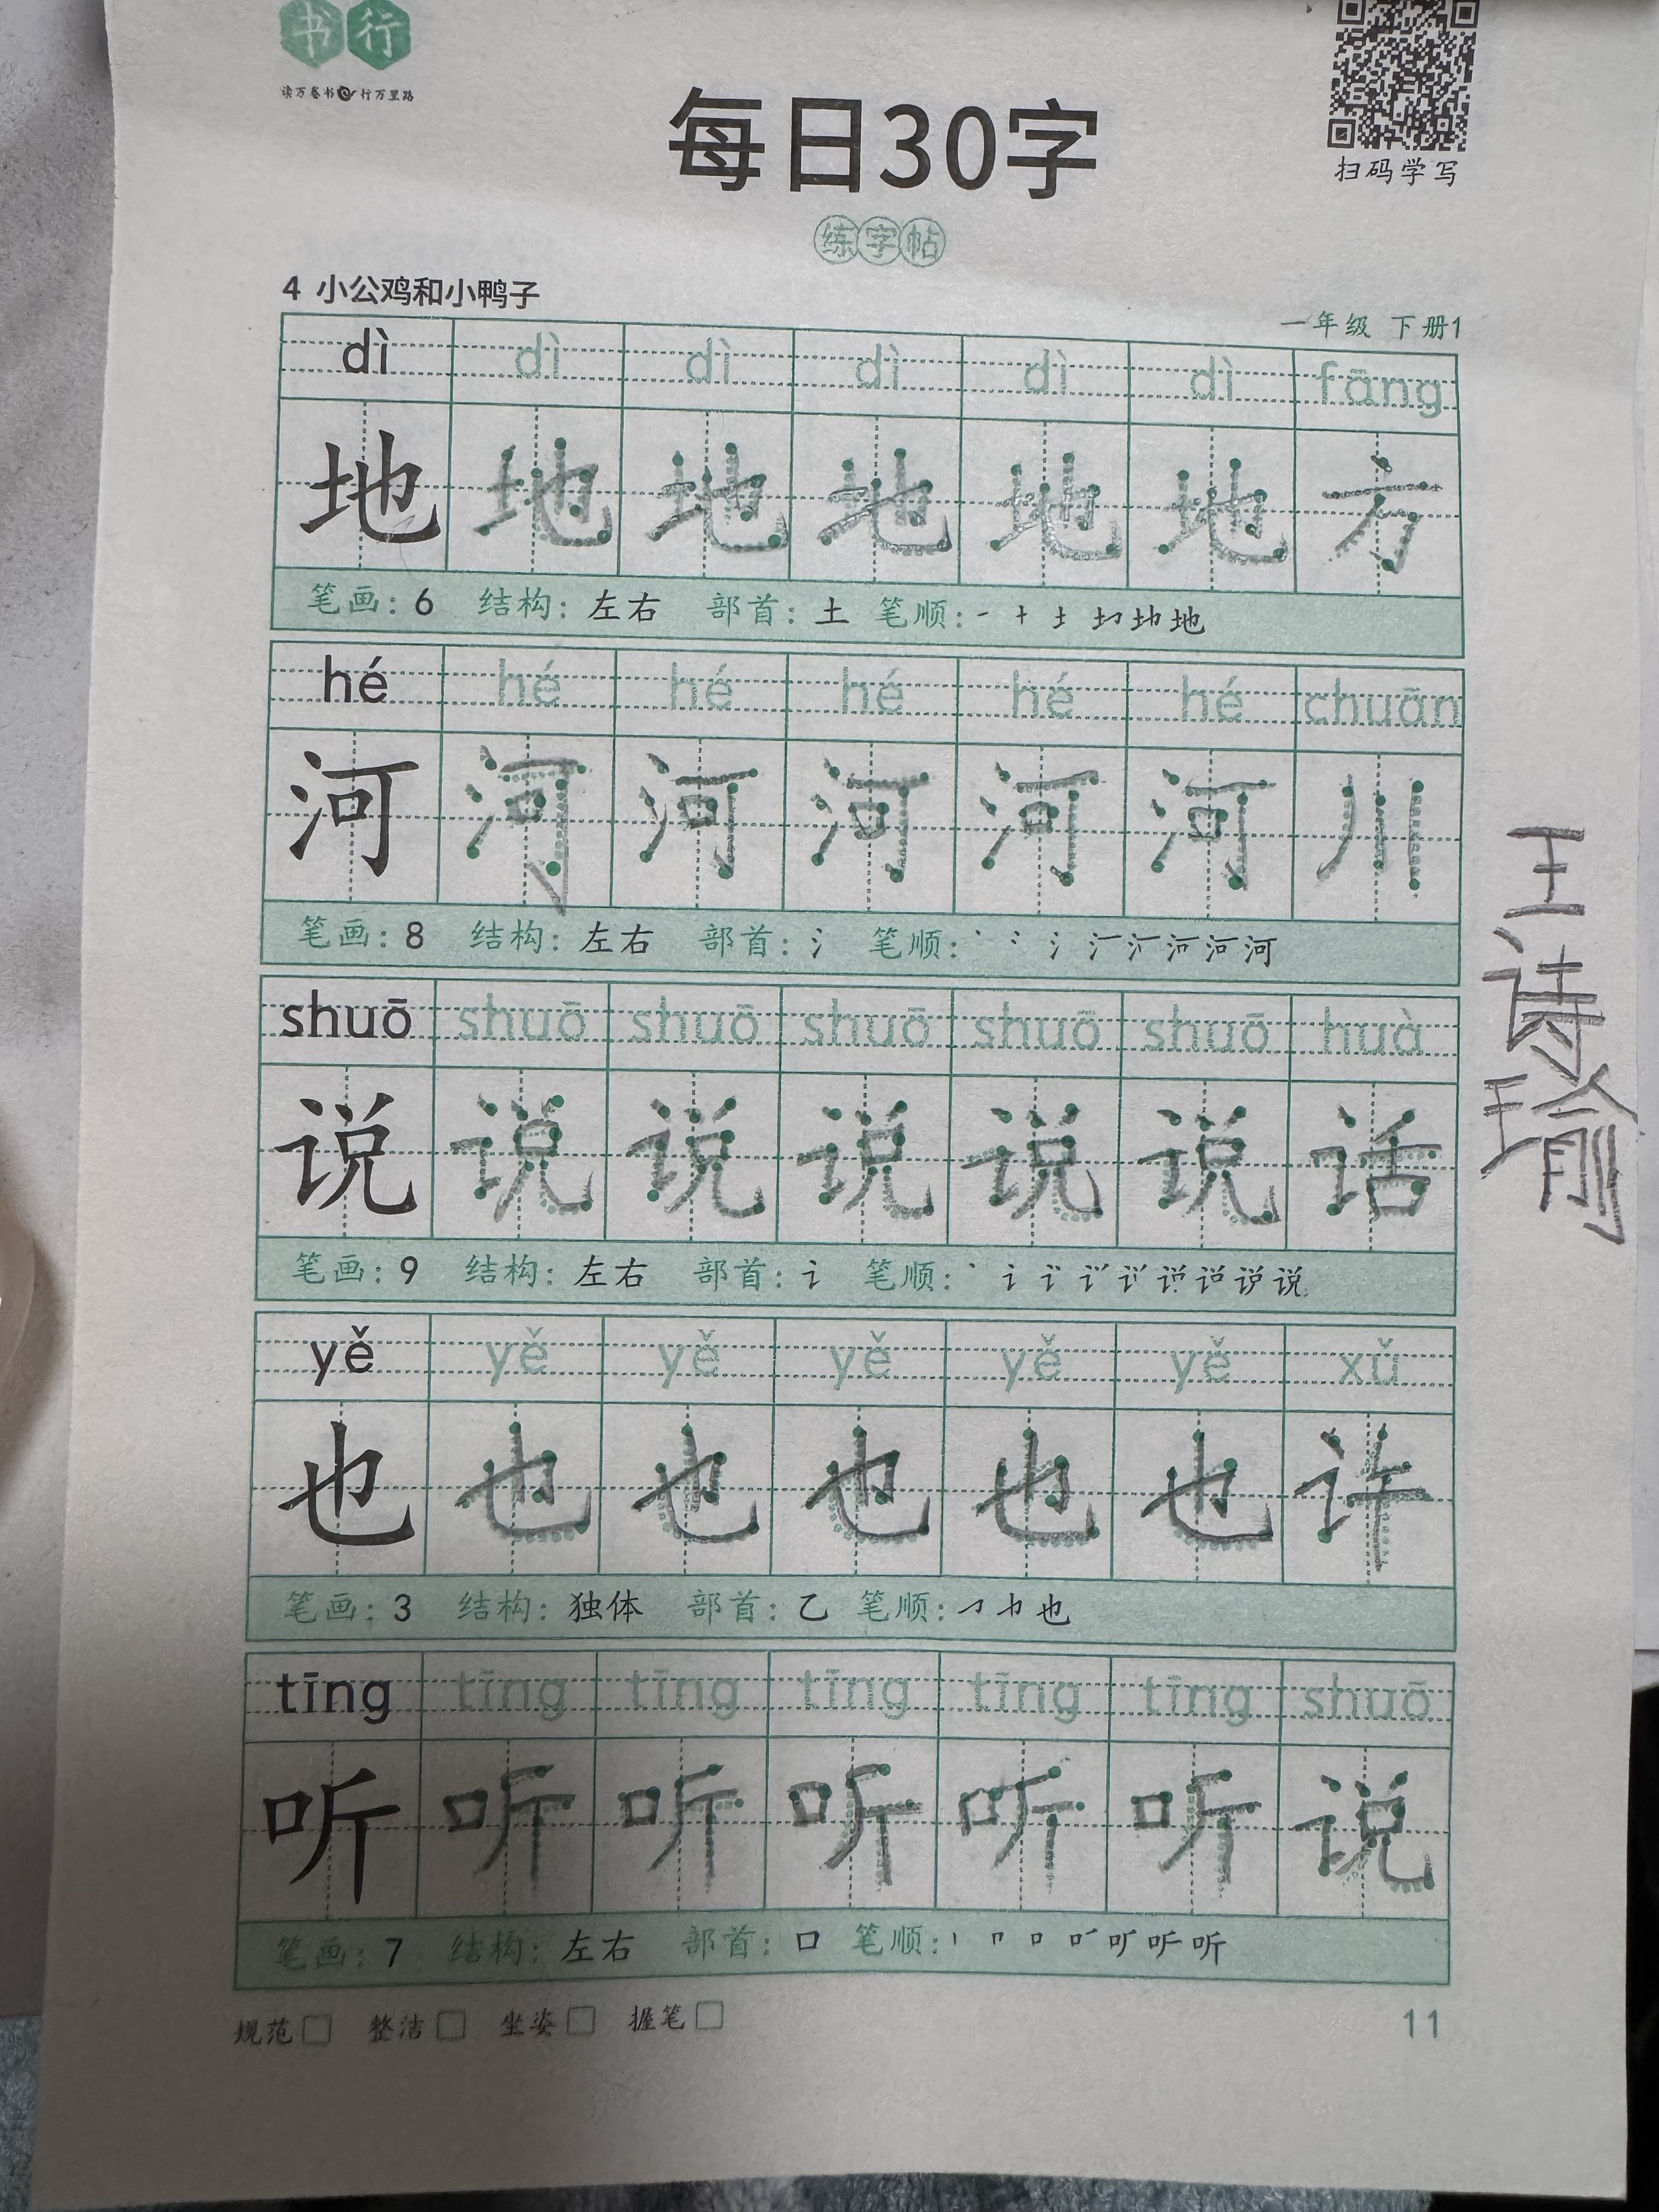 书行
读万卷书 行万里路
扫码学写
每日30字
练字帖
4 小公鸡和小鸭子
一年级 下册1
dì dì dì dì dì dì fāng
地 地 地 地 地 地 方
笔画：6 结构：左右 部首：土 笔顺：
hé hé hé hé hé hé chuān
河 河 河 河 河 河 川
笔画：8 结构：左右 部首：氵 笔顺：
shuō shuō shuō shuō shuō shuō huà
说 说 说 说 说 说 话
笔画：9 结构：左右 部首：讠 笔顺：
yě yě yě yě yě yě xǔ
也 也 也 也 也 也 许
笔画：3 结构：独体 部首：乙 笔顺：
tīng tīng tīng tīng tīng tīng shuō
听 听 听 听 听 听 说
笔画：7 结构：左右 部首：口 笔顺：
规范□ 整洁□ 坐姿□ 握笔□
11
王诗瑜